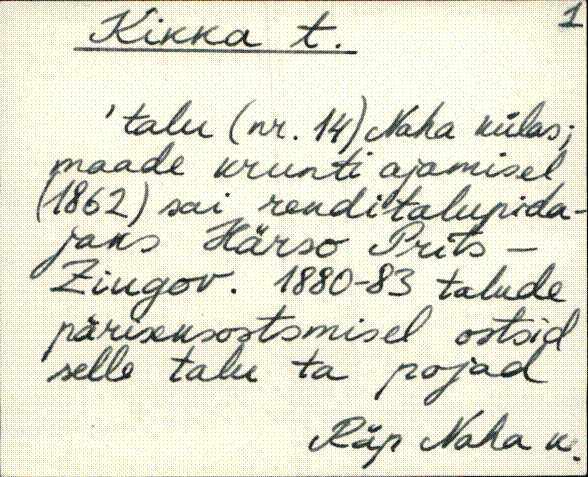 1
Kikka t.
'talu (nr. 14) Naha külas;
maade krunti ajamisel
(1862) sai renditalupida-
jaks Härso Prits –
Zingov. 1880-83 talude
päriseksostmisel ostsid
selle talu ta pojad
Räp Naha k.